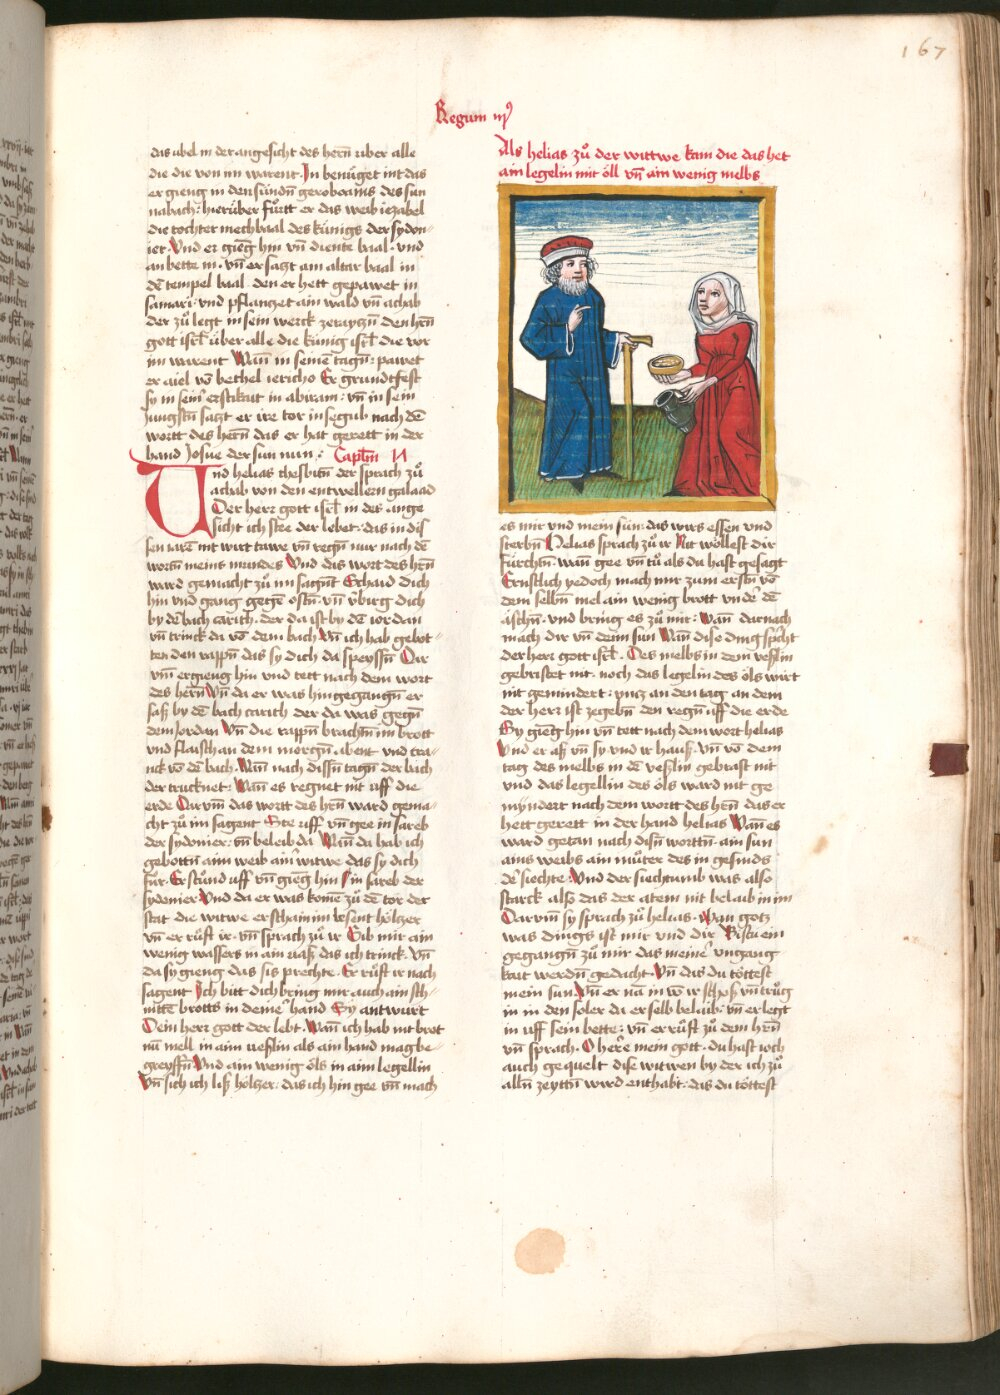 167
Regum iij
das übel in der angesicht des herñ über alle
die die von im warent. In benüget nit das
er gieng in den sündñ geroboams des sun
nabach: hierüber fůrtt er das weib iezabel
die tochter mechbaal des künigs der sydon-
ier. Vnd er gieg hin vñ diente baal. vnd
an bette in. vñ er satzt ain altar baal in
dē tempel baal. den er hett gepawet in
samari. vnd pflanzet ain wald vñ achab
der zů legt in sein werck zeraytzñ den hñ
gott isrl. über alle die künig isrl. die vor
im warent Wañ in seinē tagñ: pawet
er aiel vō bethel iericho Er grundtfest
sy in seiner erstikait in abiram: vñ in sein
jungstñ satzt er ire tor in segub nach dē
wortt des herñ das er hat gerett in der
hand Josue der sun nun: Capłm
Vnd helias thesbitñ der sprach zů
achab von den entwellern galaad
Der herr gott isrl. in des ange
sicht ich stee der lebet: das in dis
sen iarē nit wirt tawe vñ regñ nur nach dē
wortñ meins mundes Vnd das wort des hñ
ward gemacht zů im sagent Erhaud dich
hin vnd gang gegē ostñ. vñ v̈birg dich
by dē bach carith. der da ist by dē iordan
vñ trinck da vō dem bach. Vñ ich hab gebot-
ten den rappñ das sy dich da speyssñ Dar
vm̄ er gieng hin vnd tett nach dem wort
des herñ Vñ da er was hingegangñ er
sass by dē bach carith der da was gegñ
dem Jordan Vñ die rappñ brachtñ im brott
vnd flaisch an dem morgñ. abent vnd tra-
nck vō dē bach. Wañ nach dissñ tagñ der bach
der trucknet: Wañ es regnet nit uff die
erde Darvm̄ das wortt des hñ ward gema-
cht zů im sagent Ste uff vñ gee in sareb
der sydonier: vñ beleib da Wañ da hab ich
gebottñ aim weib aim witwe das sy dich
fůr. Er stůnd uff vñ gieg hin in sareb der
sydenier. Vnd da er was komē zů dē tor der
stat die witwe erschain im lesent hölzer
vñ er růft ir. vñ sprach zů ir Gib mir ain
wenig wassers in aim vaß das ich trinck. Vñ
da sy gieng das sis prechte. Er růft ir nach
sagent Ich bitt dich bring mir auch ain sch-
nittē brotts in deiner hand Sy antwurt
Dein herr gott der lebt. Wañ ich hab nit brot
nū mell in aim veslin als ain hand mag be-
greyffñ Vnd ain wenig öls in aim legellin
Vñ sich ich liß hölzer: das ich hin gee vñ mach
Als helias zů der wittwe kam die das het
ain legelin mit öll vñ ain wenig melbs
es mir vnd mein sun: das wirs essen vnd
sterbñ Helias sprach zů ir Nit wöllest dir
fürchtñ. wañ gee vñ tů als du hast gesagt
Ernstlich yedoch mach mir zum erstñ vō
dem selbñ mel ain wenig brott vnder dē
äschñ. vnd bring es zů mir: Wañ darnach
mach dir vñ deim sun Wañ dise ding spricht
der herr gott isrl. Des melbs in dem veslin
gebristet nit. noch das legelin des öls wirt
nit gemindert: vnz an den tag an dem
der herr ist zegebñ den regñ uff die erde
Sy gieg hin vñ tett nach dem wort helias
Vnd er aß vñ sy vnd ir hauß. Vñ vō dem
tag des melbs in dē veslin gebrast nit
vnd das legellin des öls ward nit ge
myndert nach dem wortt des hñ das er
hett gerett in der hand helias Wañ es
ward getan nach disñ worttñ. ain sun
ains weibs ain můter des in gesinds
der siechte. Vnd der siechtumb was also
starck also das der atem nit belaib in im
Darvm̄ sy sprach zů helias. Man gotz
was dings ist mir vnd dir Bistu ein
gegangñ zů mir das meiner vngang
kait werdñ gedacht. Vñ das du töttest
mein sun. Vñ er nā in vō ir schoß vñ trůg
in in den soler da er selb belaib. vñ er legt
in uff sein bette: vñ er růft zů dem hñ
vñ sprach. O herre mein gott. du hast ioch
auch gequelt dise witwen by der ich zů
alln̄ zeyttñ wird enthabt: das du töttest